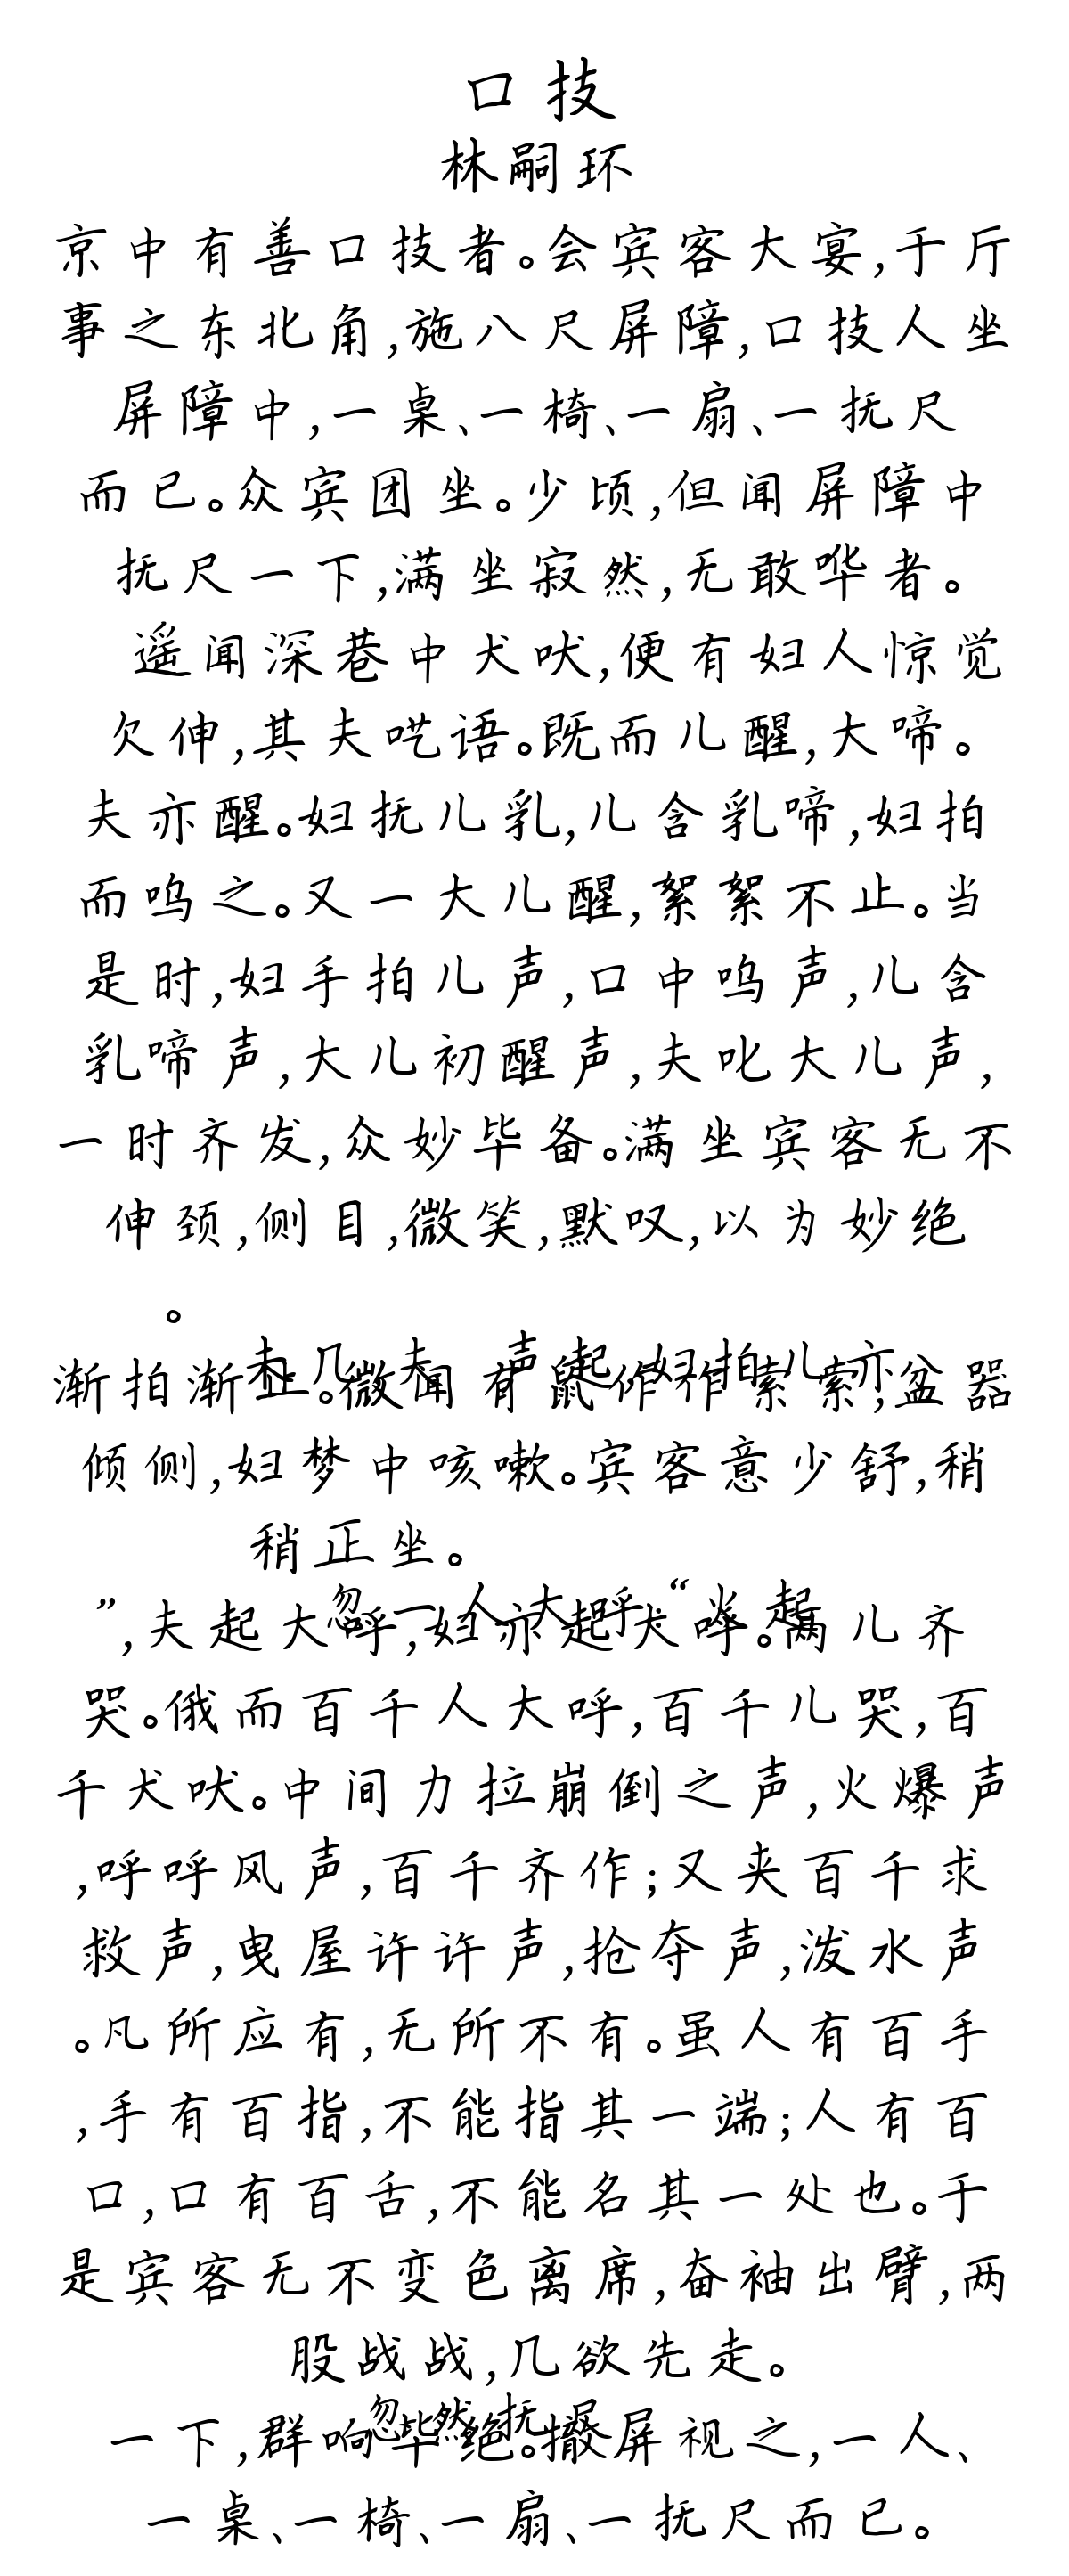 口技
林嗣环
京中有善口技者。会宾客大宴,于厅
事之东北角,施八尺屏障,口技人坐
屏障中,一桌、一椅、一扇、一抚尺
而已。众宾团坐。少顷,但闻屏障中
抚尺一下,满坐寂然,无敢哗者。
遥闻深巷中犬吠,便有妇人惊觉
欠伸,其夫呓语。既而儿醒,大啼。
夫亦醒。妇抚儿乳,儿含乳啼,妇拍
而呜之。又一大儿醒,絮絮不止。当
是时,妇手拍儿声,口中呜声,儿含
乳啼声,大儿初醒声,夫叱大儿声,
一时齐发,众妙毕备。满坐宾客无不
伸颈,侧目,微笑,默叹,以为妙绝
。
未几夫 声起 妇拍儿亦
渐拍渐止。微闻有鼠作作索索,盆器
倾侧,妇梦中咳嗽。宾客意少舒,稍
稍正坐。
忽一人大呼“火起
”,夫起大呼,妇亦起大呼。两儿齐
哭。俄而百千人大呼,百千儿哭,百
千犬吠。中间力拉崩倒之声,火爆声
,呼呼风声,百千齐作;又夹百千求
救声,曳屋许许声,抢夺声,泼水声
。凡所应有,无所不有。虽人有百手
,手有百指,不能指其一端;人有百
口,口有百舌,不能名其一处也。于
是宾客无不变色离席,奋袖出臂,两
股战战,几欲先走。
忽然抚尺
一下,群响毕绝。撤屏视之,一人、
一桌、一椅、一扇、一抚尺而已。